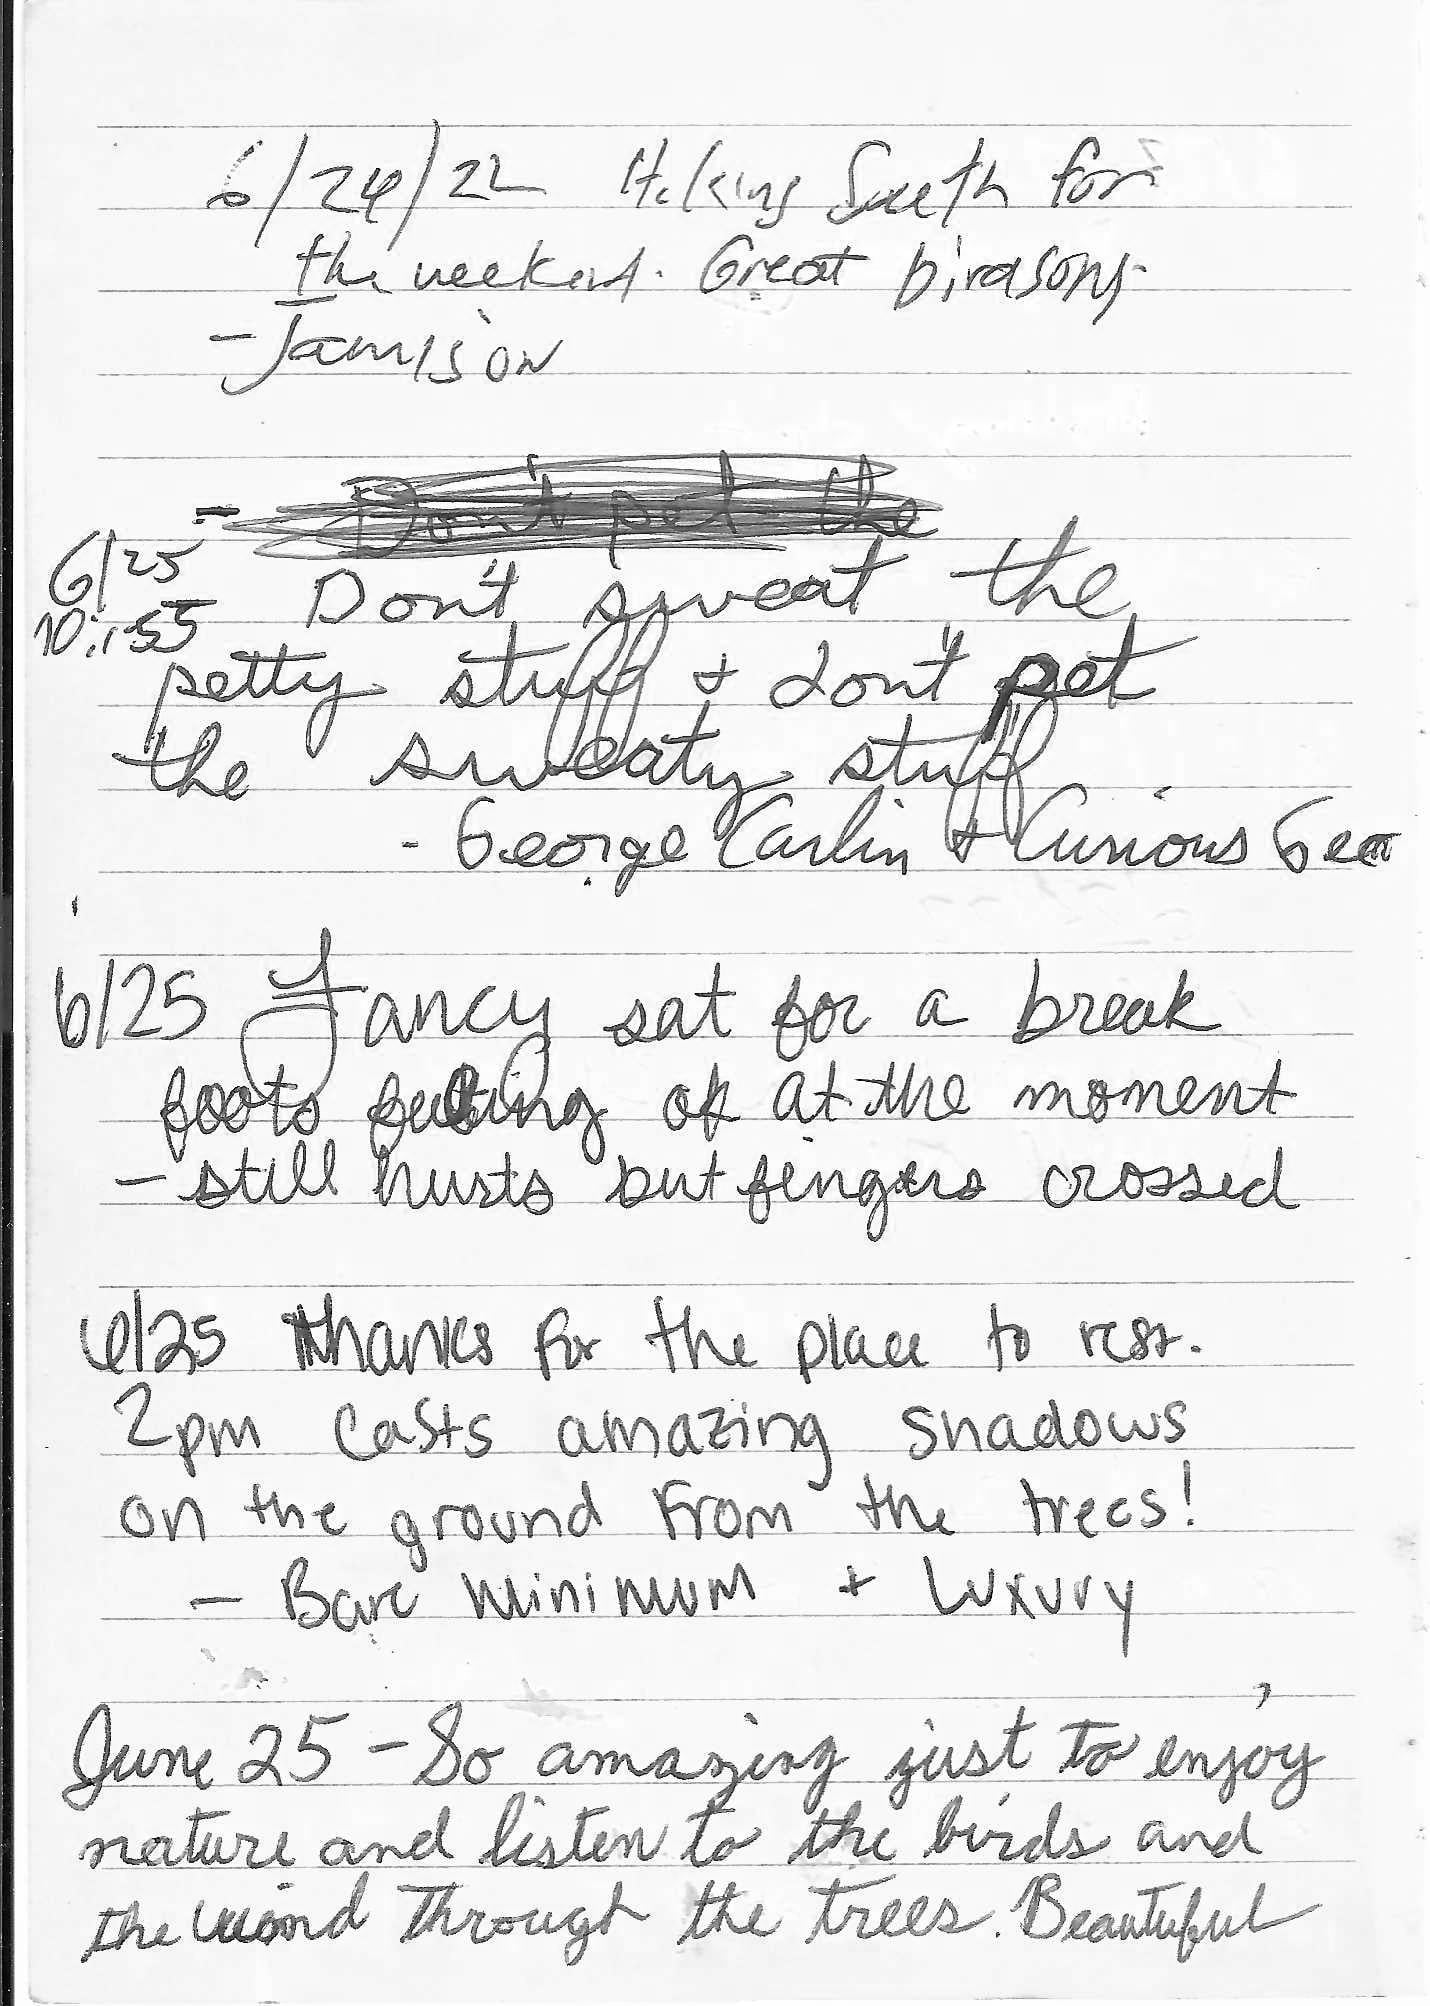 6/24/22 Hiking South for
the weekend. Great birdsong.
- Jamison
- Don't pet the
6/25
10:55
Don't sweat the
petty stuff + don't pet
the sweaty stuff
- George Carlin + Curious Geo
6/25 Fancy sat for a break
foots feeling ok at the moment
- still hurts but fingers crossed
6/25 Thanks for the place to rest.
2pm casts amazing shadows
on the ground from the trees!
- Bare Minimum + Luxury
June 25 - So amazing just to enjoy
nature and listen to the birds and
the wind through the trees. Beautiful